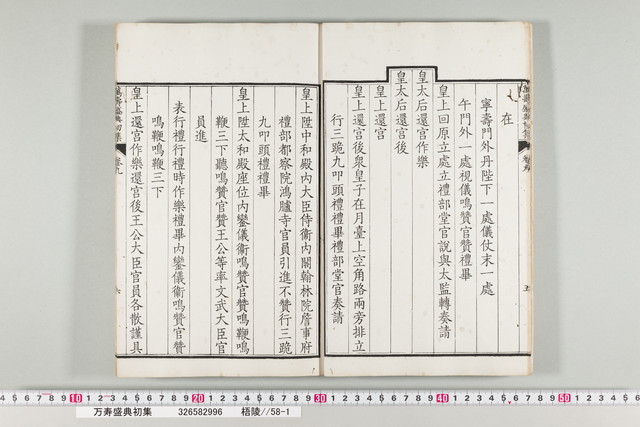 在
寧壽門外丹陛下一處儀仗末一處
午門外一處視儀鳴贊官贊禮畢
皇上回原立處立禮部堂官說與太監轉奏請
皇太后還宮作樂
皇太后還宮後
皇上還宮
皇上還宮後衆皇子在月臺上空角路兩旁排立
行三跪九叩頭禮禮畢禮部堂官奏請
皇上陞中和殿內大臣侍衞內閣翰林院詹事府
禮部都察院鴻臚寺官員引進不贊行三跪
九叩頭禮禮畢
皇上陞太和殿座位內鑾儀衞鳴贊官贊鳴鞭鳴
鞭三下聽鳴贊官贊王公等率文武大臣官
員進
表行禮行禮時作樂禮畢內鑾儀衞鳴贊官贊
鳴鞭鳴鞭三下
皇上還宮作樂還宮後王公大臣官員各散謹具
萬壽盛典初集 卷九 六
10 20 30 40 50
万寿盛典初集 326582996 梧陵//58-1